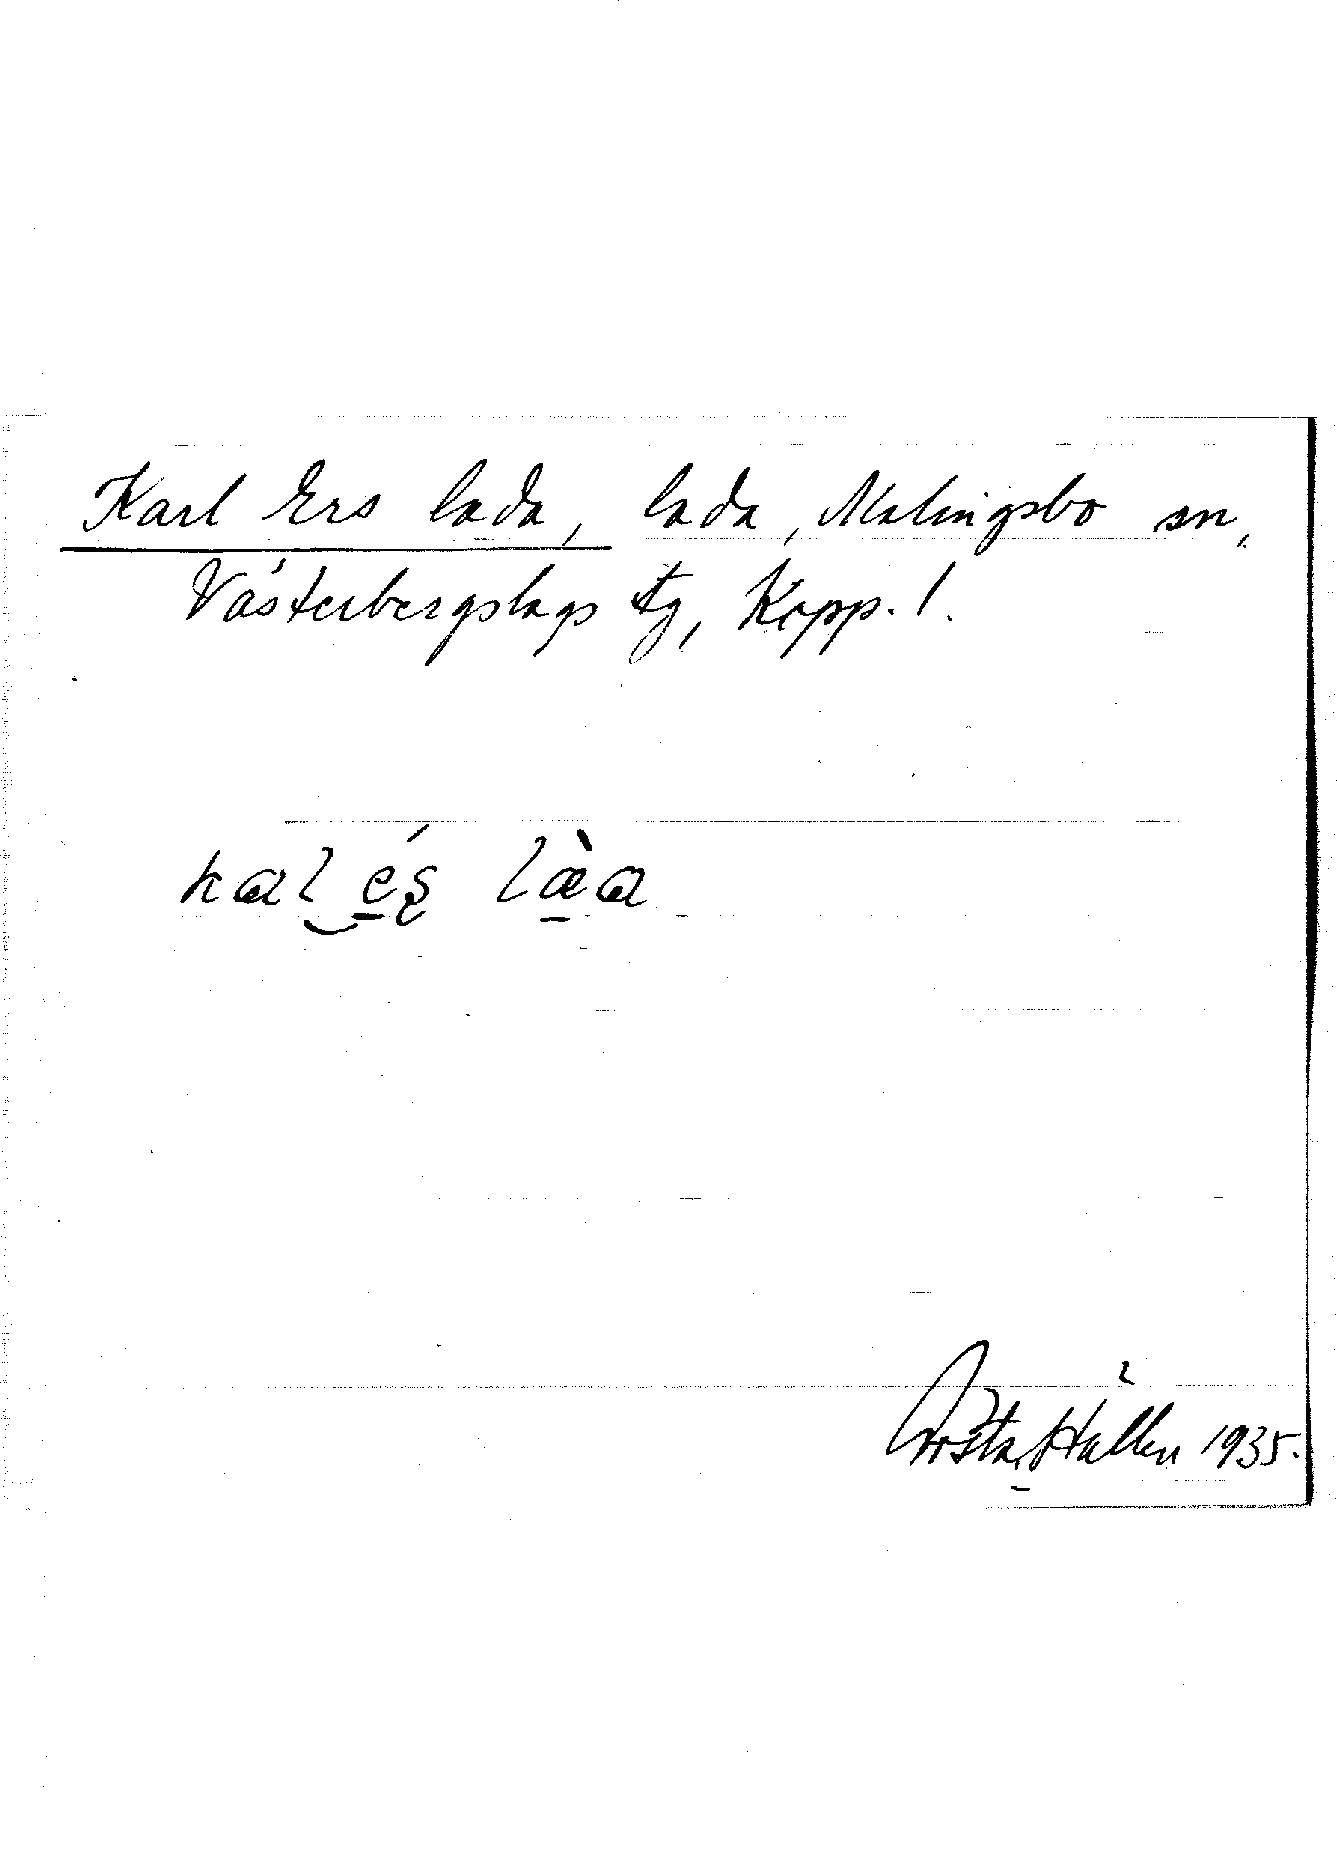 Karl Ers lada, lada, Malingsbo sn,
Västerbergslags tg, Kopp. l.
kal és làa
Gösta Hallen 1935.